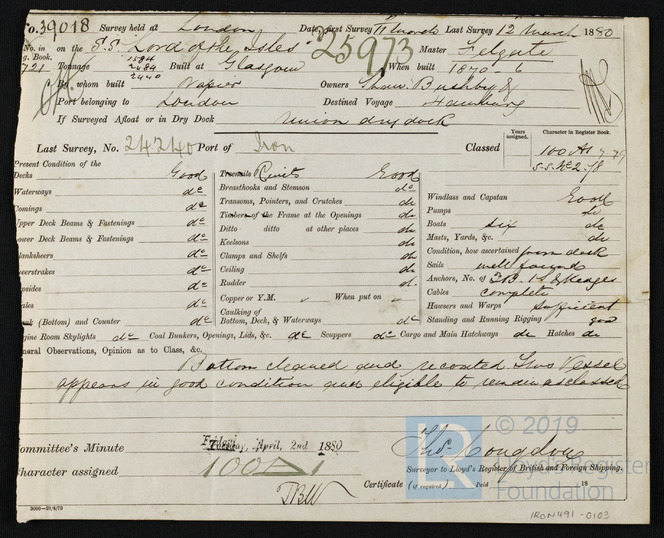 No. 39018 Survey held at London Date, First Survey 11 March Last Survey 12 March 1880
No. in on the S.S. "Lord of the Isles" 25973 Master Felgate
g. Book.
721 Tonnage 2484 2440 Built at Glasgow When built 1870-6
By whom built Napier Owners Shaw, Bushby &
Port belonging to London Destined Voyage
If Surveyed Afloat or in Dry Dock Union dry dock
Last Survey, No. 24240 Port of Iron Classed
Years assigned.
Character in Register Book.
100 A1
S.S. No 2
Present Condition of the
Decks Good
Waterways do
Comings do
Upper Deck Beams & Fastenings do
Lower Deck Beams & Fastenings do
lanksheers do
verstrakes do
opsides do
ales do
(Bottom) and Counter do
Treenails Rivets Good
Breasthooks and Stemson do
Transoms, Pointers, and Crutches do
Timbers of the Frame at the Openings do
Ditto ditto at other places do
Keelsons do
Clamps and Shelfs do
Ceiling do
Rudder do
Copper or Y.M. When put on
Caulking of
Bottom, Deck, & Waterways do
Windlass and Capstan Good
Pumps do
Boats six do
Masts, Yards, &c. do
Condition, how ascertained from deck
Sails well found
Anchors, No. of 3B. 1S. & Kedges
Cables complete
Hawsers and Warps Sufficient
Standing and Running Rigging good
gine Room Skylights do Coal Bunkers, Openings, Lids, &c. do Scuppers do Cargo and Main Hatchways do Hatches do
neral Observations, Opinion as to Class, &c.
Bottom cleaned and recoated This Vessel
appears in good condition and eligible to remain as classed
© 2019
Lloyd's Register
Foundation
Committee's Minute Friday Tuesday, April, 2nd 1880
Character assigned 100 A1
Thos. Congdon
Surveyor to Lloyd's Register of British and Foreign Shipping.
Certificate (if required) Paid 18
3000—29/4/79
IRON491-0103